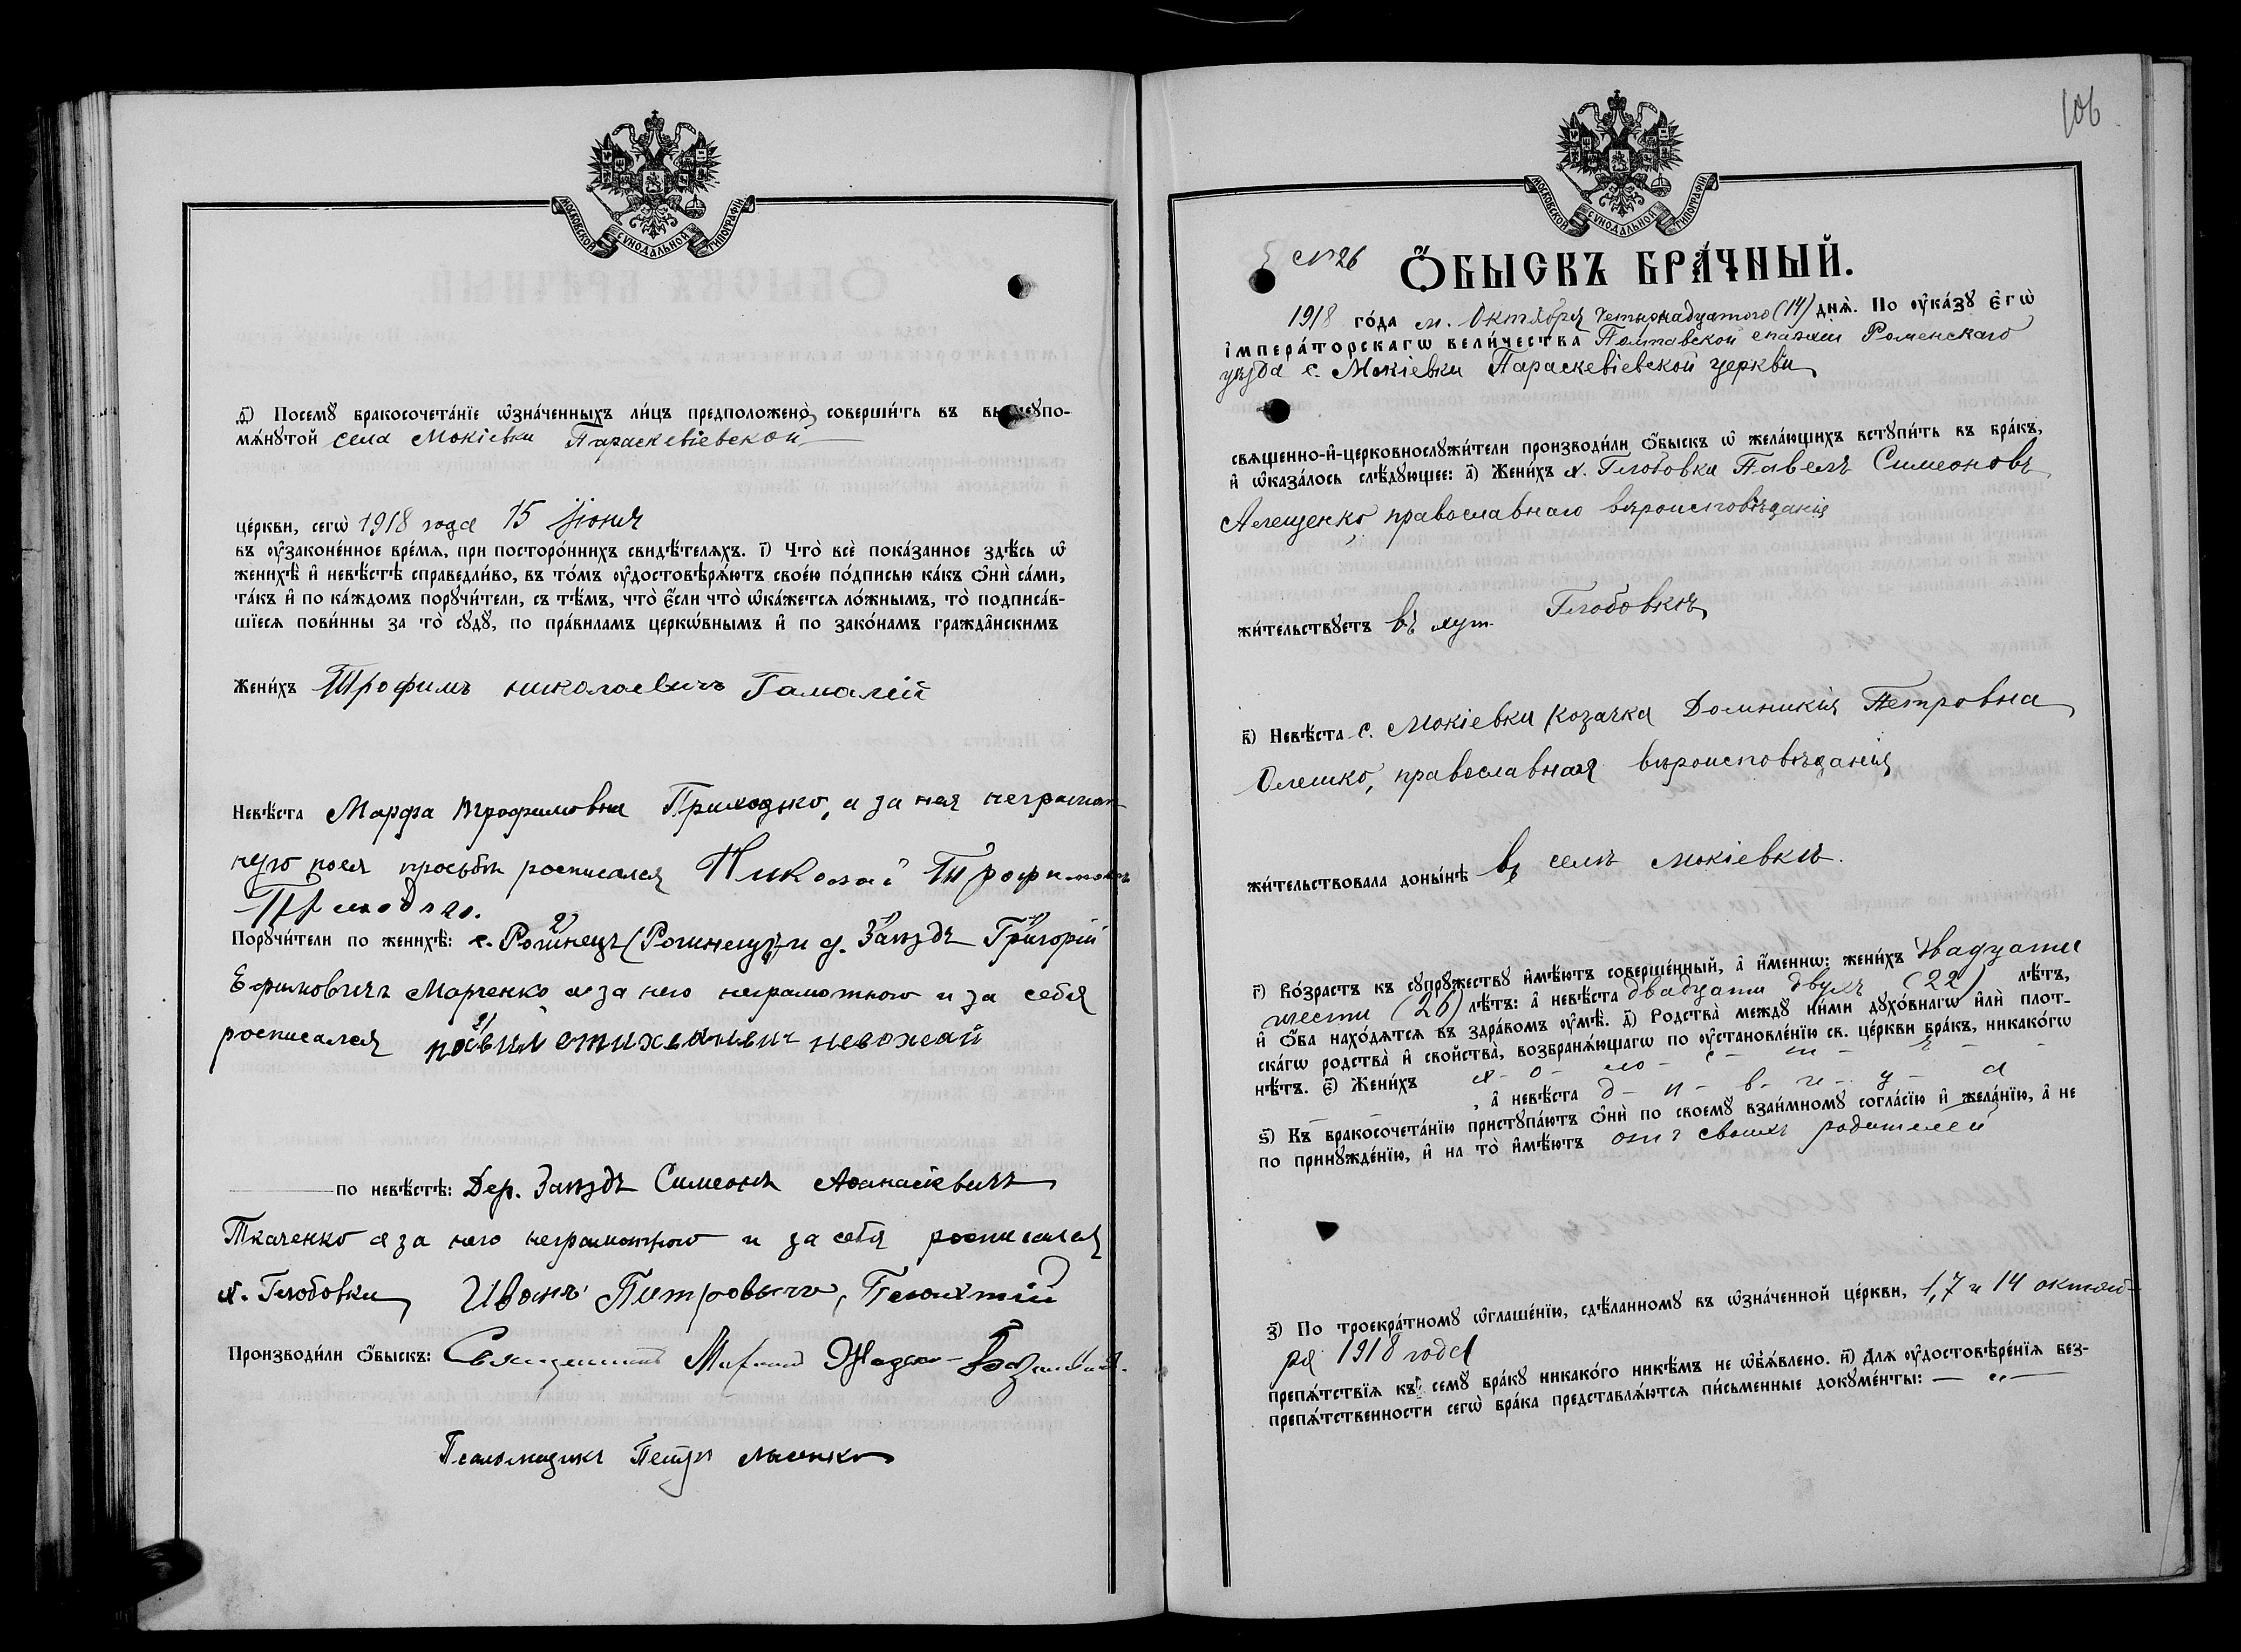 МОСКОВСКОЙ СѴНОДАЛЬНОЙ ТИПОГРАФІИ
д҃) Посемꙋ̀ бракосочета́нїе ѡ҆зна́ченныхъ ли́цъ предположено̀ соверши́ть въ вышеꙋпо-
мѧ́нꙋтой села Мокіевки Параскевіевской
це́ркви, сегѡ̀ 1918 года 15 іюня
въ ᲂу҆законе́нное вре́мѧ, при посторо́ннихъ свидѣ́телѧхъ. і҃) Что̀ всѐ пока́занное здѣ́сь ѡ҆
женихѣ̀ и҆ невѣ́стѣ справедли́во, въ то́мъ ᲂу҆достовѣрѧ́ютъ свое́ю по́дписью ка́къ ѻ҆нѝ са́ми,
та́къ и҆ по ка́ждомъ порꙋчи́тели, съ тѣ́мъ, что̀ є҆́сли что̀ ѡ҆ка́жетсѧ ло́жнымъ, то̀ подписа́в-
шїесѧ пови́нны за то̀ сꙋдꙋ̀, по пра́виламъ церкѡ́внымъ и҆ по зако́намъ гражда̑нскимъ
Жени́хъ Трофимъ николаевичъ Гамалій
Невѣ́ста Марфа Трофимовна Приходько, а за нея неграмот
ную по ея просьбѣ росписался Николай Трофимовъ
Приходько.
Порꙋчи́тели по женихѣ̀: с. Рогинецъ (Рогинецъ) и д. Заѣздъ Григорій
Ефимовичъ Марченко а за него неграмотного и за себя
росписался невожай
по невѣ́стѣ: Дер. Заѣздъ Симеонъ Аѳанасіевичъ
Ткаченко а за него неграмотного и за себя росписался
х. Глобовки Иванъ Петровичъ,
Производи́ли ѻ҆́быскъ: Священникъ
Псаломщикъ Петръ
106
МОСКОВСКОЙ СѴНОДАЛЬНОЙ ТИПОГРАФІИ
№ 26 Ѻ҆́БЫСКЪ БРА́ЧНЫЙ.
1918 го́да м. Октября четырнадцатого (14) днѧ̀. По ᲂу҆ка́зꙋ є҆гѡ̀
і҆мпера́торскагѡ вели́чества Полтавской епархіи Роменскаго
уѣзда с. Мокіевки Параскевіевской церкви
свѧщенно-и҆-церковнослꙋжи́тели производи́ли ѻ҆́быскъ ѡ҆ жела́ющихъ встꙋпи́ть въ бра́къ,
и҆ ѡ҆каза́лось слѣ́дꙋющее: а҃) Жени́хъ х. Глобовки Павелъ Симеоновъ
Алещенко, православнаго вѣроисповѣданія
жи́тельствꙋетъ въ хут. Глобовкѣ
в҃) Невѣ́ста с. Мокіевки козачка Домникія Петровна
Олешко, православная вѣроисповѣданія
жи́тельствовала доны́нѣ въ селѣ Мокіевкѣ.
г҃) Во́зрастъ къ сꙋпрꙋ́жествꙋ и҆мѣ́ютъ соверше́нный, а҆ и҆́меннѡ: жени́хъ двадцати
шести (26) лѣ́тъ: а҆ невѣ́ста двадцати двухъ (22) лѣ́тъ,
и҆ ѻ҆́ба нахо́дѧтсѧ въ здра́вомъ ᲂу҆мѣ̀. д҃) Родства̀ междꙋ̀ ни́ми дꙋхо́внагѡ и҆лѝ плот-
ска́гѡ родства̀ и҆ сво́йства, возбранѧ́ющагѡ по ᲂу҆становле́нїю св. це́ркви бра́къ, никако́гѡ
нѣ́тъ. є҃) Жени́хъ х - о - ло - с - т - ъ -
, а҆ невѣ́ста д - и - в - и - ц - а
ѕ҃) Къ бракосочета́нїю пристꙋпа́ютъ ѻ҆нѝ по своемꙋ̀ взаи́мномꙋ согла́сїю и҆ жела́нїю, а҆ не
по принꙋжде́нїю, и҆ на то̀ и҆мѣ́ютъ отъ своихъ родителей
з҃) По троекра́тномꙋ ѡ҆глаше́нїю, сдѣ́ланномꙋ въ ѡ҆зна́ченной це́ркви, 1, 7 и 14 октяб-
ря 1918 года
препѧ́тствїѧ къ семꙋ̀ бра́кꙋ никако́го никѣ́мъ не ѡ҆б̾ѧ́влено. и҃) Длѧ ᲂу҆достовѣре́нїѧ без-
препѧ́тственности сегѡ̀ бра́ка представлѧ́ютсѧ пи́сьменные докꙋме́нты: — „ —